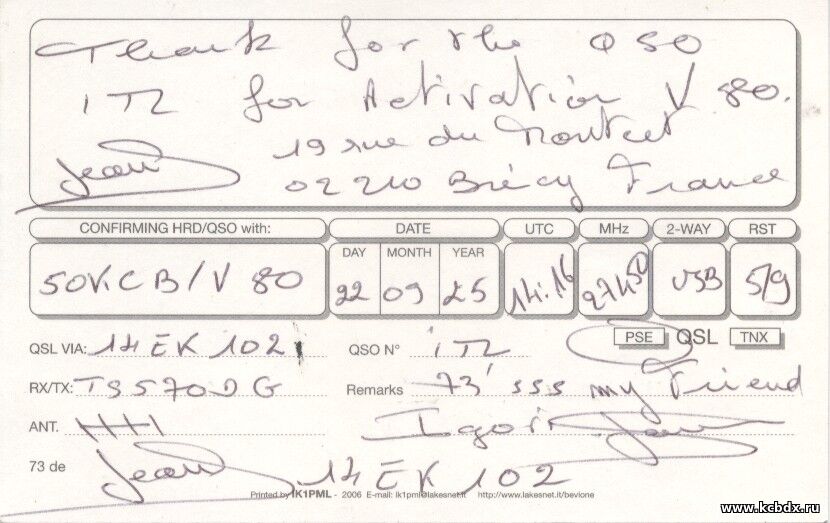 Thank for the QSO
ITL for Activation V 80.
19 rue du Montcet
Jean 02210 Brécy France
CONFIRMING HRD/QSO with: DATE UTC MHz 2-WAY RST
DAY MONTH YEAR
50KCB/V 80 22 09 25 14:16 27450 USB 5/9
QSL VIA: 14 EK 102 QSO N° ITL PSE QSL TNX
RX/TX: TS570DG Remarks 73' sss my Friend
ANT. Igor Jean
73 de Jean 14 EK 102
Printed by IK1PML - 2006 E-mail: ik1pml@lakesnet.it http://www.lakesnet.it/bevione
www.kcbdx.ru